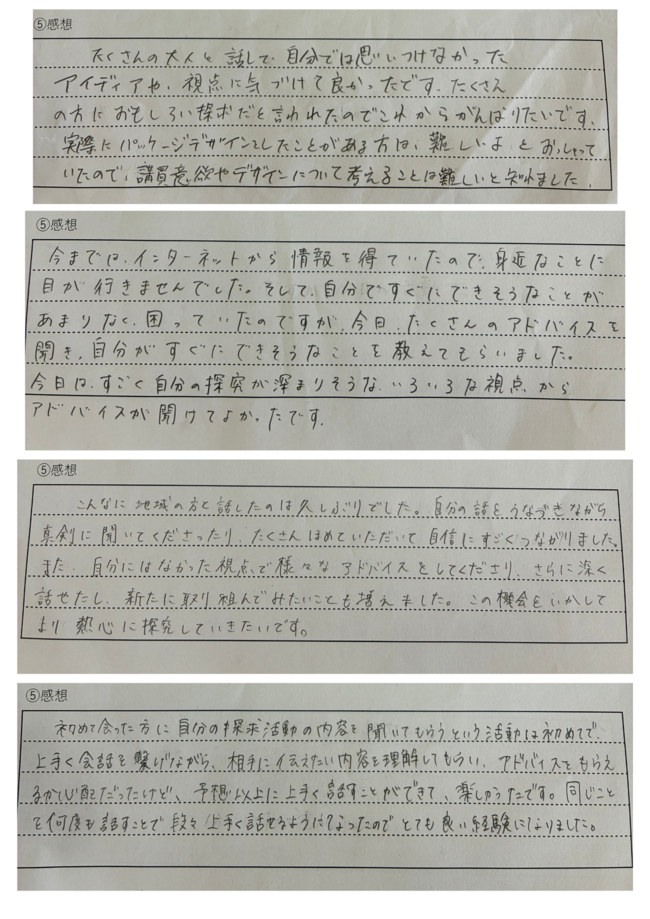 ⑤感想
たくさんの大人と話して、自分では思いつけなかった
アイディアや、視点に気づけて良かったです。たくさん
の方におもしろい探求だと言われたのでこれからがんばりたいです。
実際にパッケージデザインをしたことがある方は、難しいよとおっしゃって
いたので、購買意欲やデザインについて考えることは難しいと知れました。
⑤感想
今までは、インターネットから情報を得ていたので、身近なことに
目が行きませんでした。そして、自分ですぐにできそうなことが
あまりなく、困っていたのですが、今日、たくさんのアドバイスを
聞き、自分がすぐにできそうなことを教えてもらいました。
今日は、すごく自分の探究が深まりそうな、いろいろな視点から
アドバイスが聞けてよかったです。
⑤感想
こんなに地域の方と話したのは久しぶりでした。自分の話をうなづきながら
真剣に聞いてくださったり、たくさんほめていただいて自信にすごくつながりました。
また、自分にはなかった視点で様々なアドバイスをしてくださり、さらに深く
話せたし、新たに取り組んでみたいことも増えました。この機会をいかして
より熱心に探究していきたいです。
⑤感想
初めて会った方に自分の探求活動の内容を聞いてもらうという活動は初めてで、
上手く会話を繋げながら、相手に伝えたい内容を理解してもらい、アドバイスをもらえ
るか心配だったけど、予想以上に上手く話すことができて、楽しかったです。同じこと
を何度も話すことで段々上手く話せるようになったのでとても良い経験になりました。